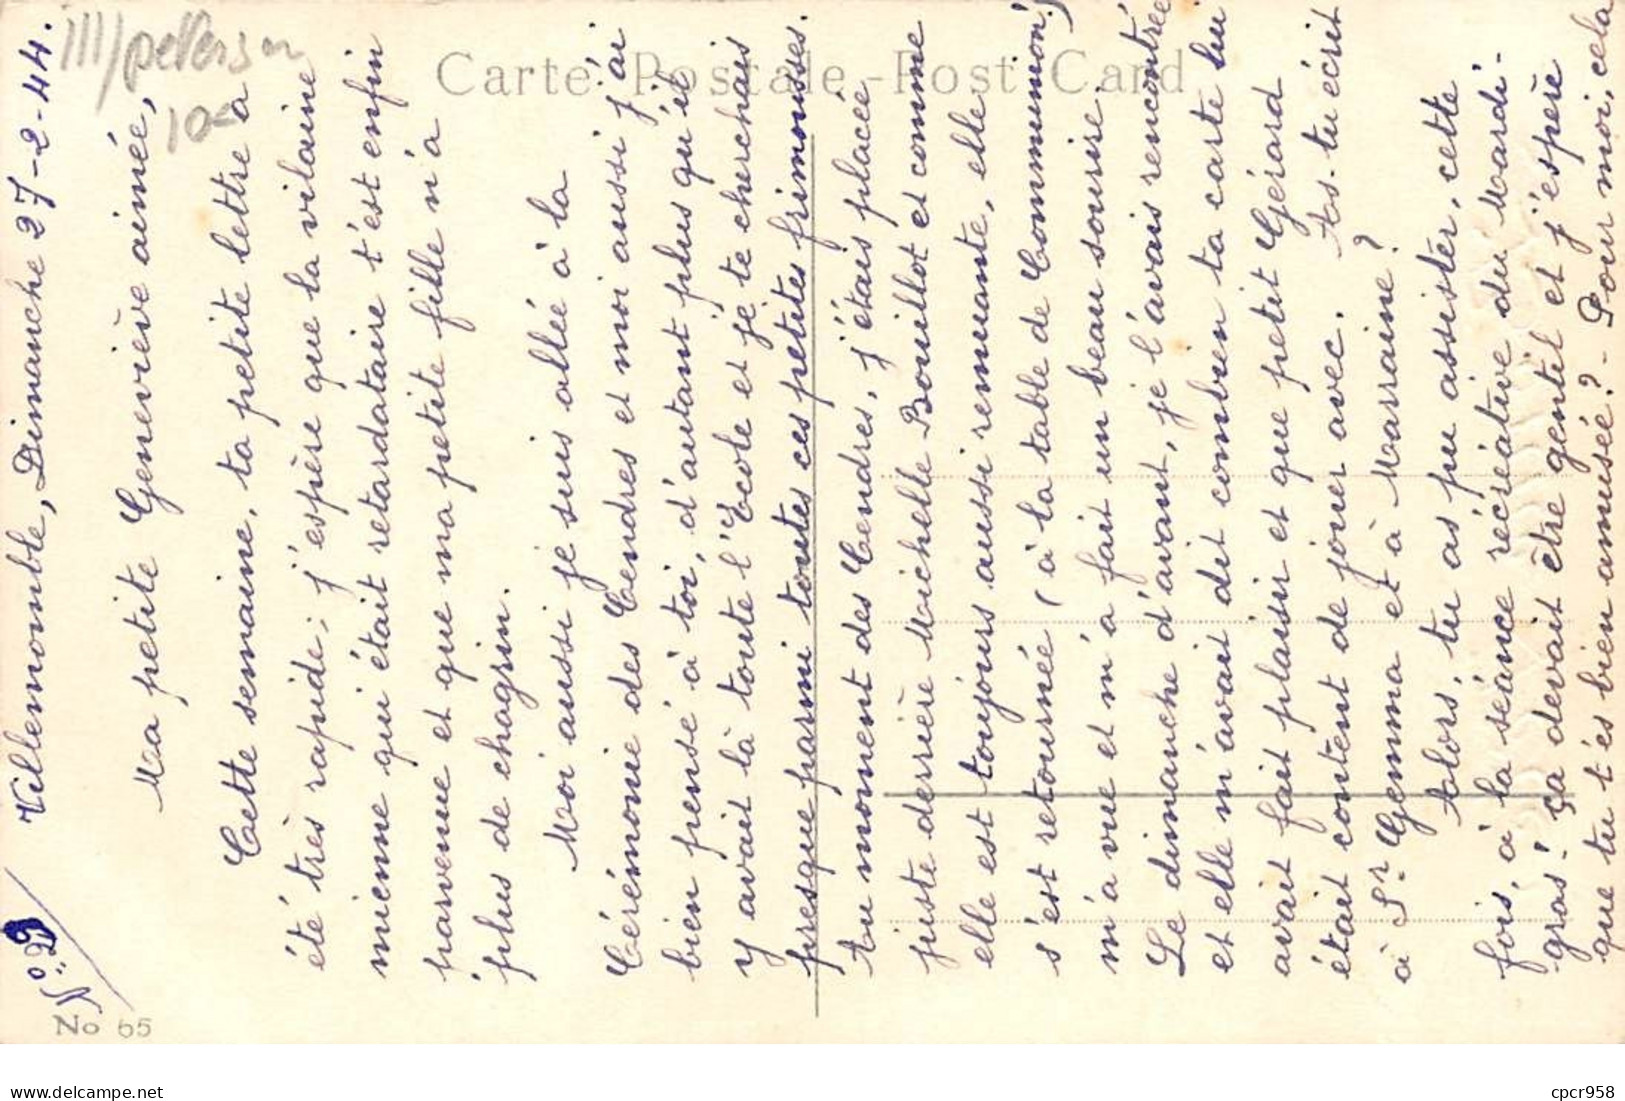 N° 29
Villemomble, Dimanche 27-2-44.
Ma petite Geneviève aimée,
Cette semaine, ta petite lettre a
été très rapide; j'espère que la vilaine
mienne qui était retardataire t'est enfin
parvenue et que ma petite fille n'a
plus de chagrin.
Moi aussi je suis allée à la
Cérémonie des Cendres et moi aussi j'ai
bien pensé à toi, d'autant plus qu'il
y avait là toute l'Ecole et je te cherchais
presque parmi toutes ces petites frimousses.
Au moment des Cendres, j'étais placée
juste derrière Michelle Bouillot et comme
elle est toujours aussi remuante, elle
s'est retournée (à la table de Communion!)
m'a vue et m'a fait un beau sourire.
Le dimanche d'avant, je l'avais rencontrée
et elle m'avait dit combien ta carte lui
avait fait plaisir et que petit Gérard
était content de jouer avec. As-tu écrit
à Sr Gemma et à Marraine?
Alors, tu as pu assister, cette
fois, à la séance récréative du Mardi-
gras! ça devait être gentil et j'espère
que tu t'es bien amusée? - Pour moi, cela
Carte Postale - Post Card
No 65
III/
10€
cpcr958